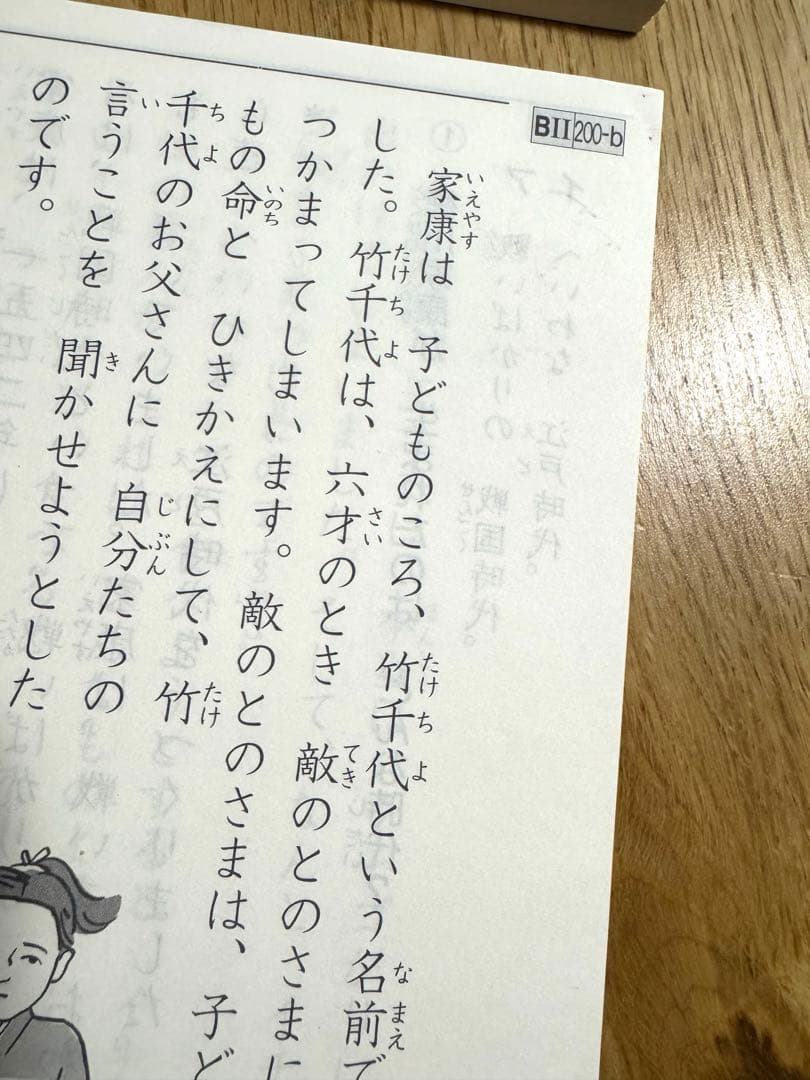 BII 200-b
いえやす たけちよ なまえ
家康は 子どものころ、竹千代という名前で
たけちよ さい てき
した。竹千代は、六才のとき 敵のとのさまに
つかまってしまいます。敵のとのさまは、子ど
いのち たけ
もの命と ひきかえにして、竹
ちよ じぶん
千代のお父さんに 自分たちの
い き
言うことを 聞かせようとした
のです。